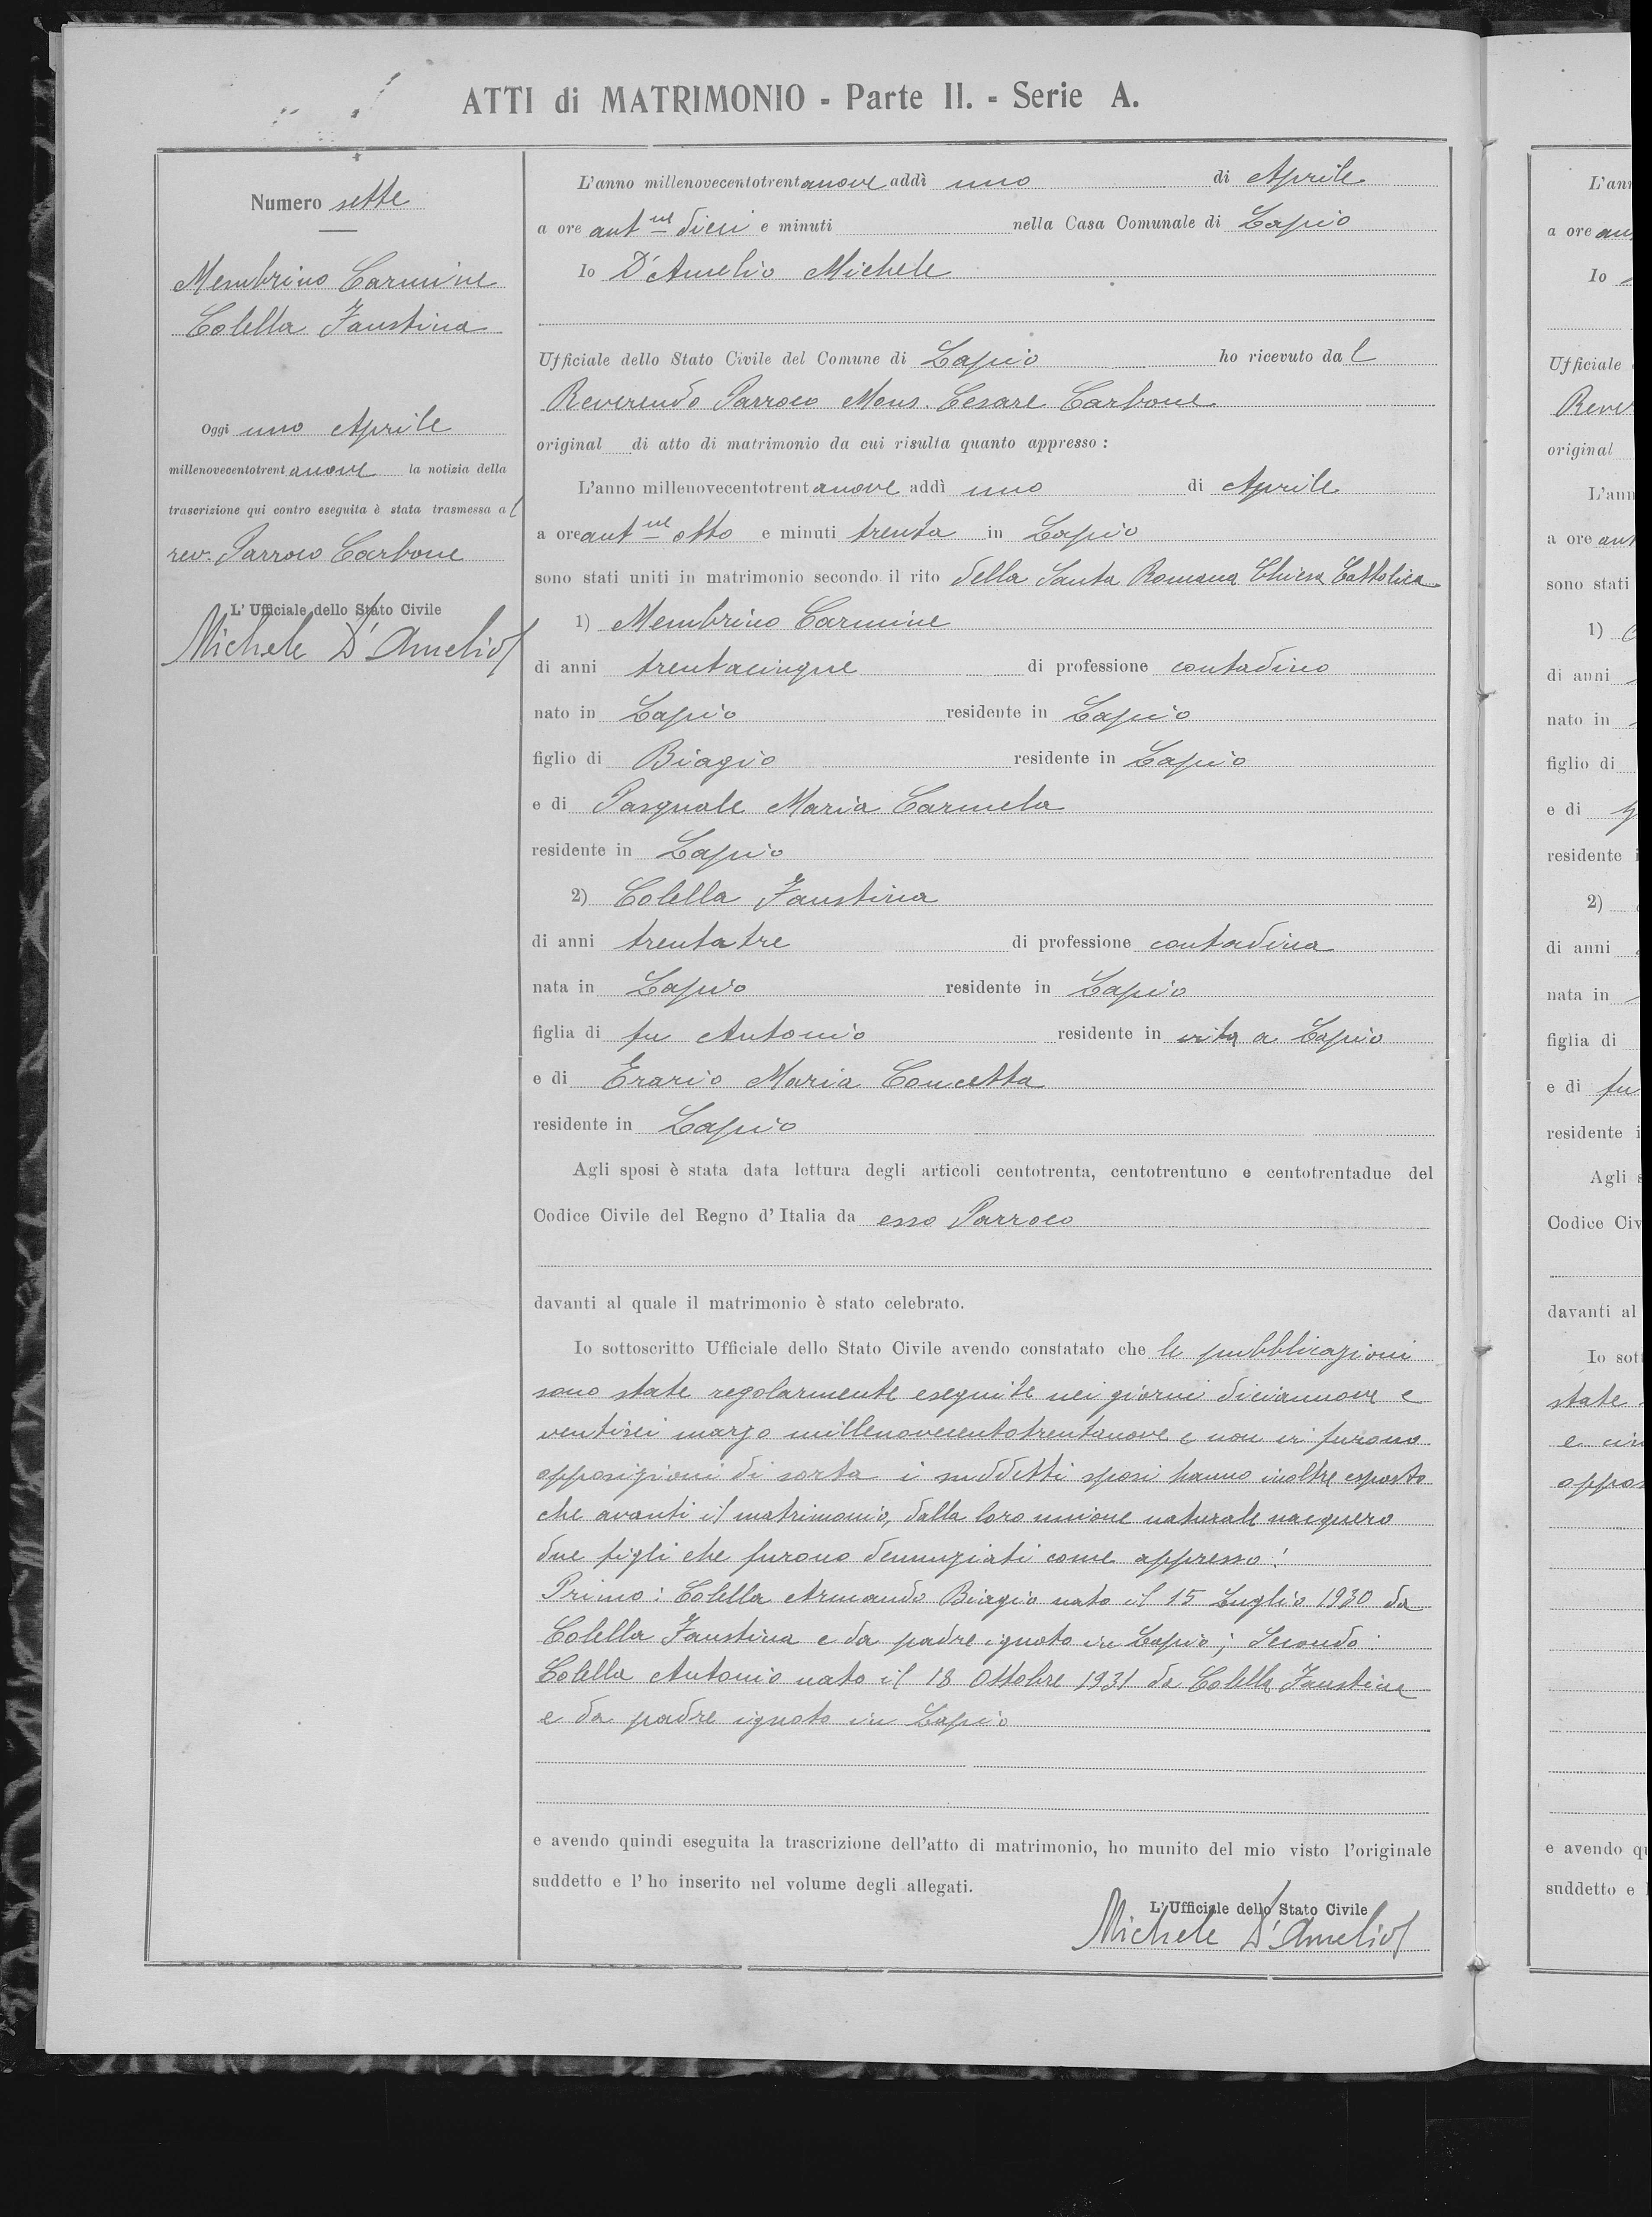 ATTI di MATRIMONIO - Parte II. - Serie A.
Numero sette
Membrino Carmine
Colella Faustina
Oggi uno Aprile
millenovecentotrentanove la notizia della
trascrizione qui contro eseguita è stata trasmessa al
rev. Parroco Carbone
L'Ufficiale dello Stato Civile
Michele D'Amelio
L'anno millenovecentotrentanove addì uno di Aprile
a ore ant.ne dieci e minuti nella Casa Comunale di Lapio
Io D'Amelio Michele
Ufficiale dello Stato Civile del Comune di Lapio ho ricevuto dal
Reverendo Parroco Mons. Cesare Carbone
original di atto di matrimonio da cui risulta quanto appresso:
L'anno millenovecentotrentanove addì uno di Aprile
a ore ant.ne otto e minuti trenta in Lapio
sono stati uniti in matrimonio secondo il rito della Santa Romana Chiesa Cattolica
1) Membrino Carmine
di anni trentacinque di professione contadino
nato in Lapio residente in Lapio
figlio di Biagio residente in Lapio
e di Pasquale Maria Carmela
residente in Lapio
2) Colella Faustina
di anni trentatre di professione contadina
nata in Lapio residente in Lapio
figlia di fu Antonio residente in vita a Lapio
e di Erario Maria Concetta
residente in Lapio
Agli sposi è stata data lettura degli articoli centotrenta, centotrentuno e centotrentadue del
Codice Civile del Regno d'Italia da esso Parroco
davanti al quale il matrimonio è stato celebrato.
Io sottoscritto Ufficiale dello Stato Civile avendo constatato che le pubblicazioni
sono state regolarmente eseguite nei giorni diciannove e
ventisei marzo millenovecentotrentanove e non vi furono
opposizioni di sorta i suddetti sposi hanno inoltre esposto
che avanti il matrimonio, dalla loro unione naturale nacquero
due figli che furono denunziati come appresso:
Primo: Colella Armando Biagio nato il 15 Luglio 1930 da
Colella Faustina e da padre ignoto in Lapio; Secondo:
Colella Antonio nato il 18 Ottobre 1931 da Colella Faustina
e da padre ignoto in Lapio
e avendo quindi eseguita la trascrizione dell'atto di matrimonio, ho munito del mio visto l'originale
suddetto e l'ho inserito nel volume degli allegati.
L'Ufficiale dello Stato Civile
Michele D'Amelio
a ore
Io
Ufficiale
original
a ore
sono stati
1)
di anni
nato in
figlio di
e di
residente
2)
di anni
nata in
figlia di
e di fu
residente
Agli
Codice
davanti al
Io
state
e
e avendo
suddetto e